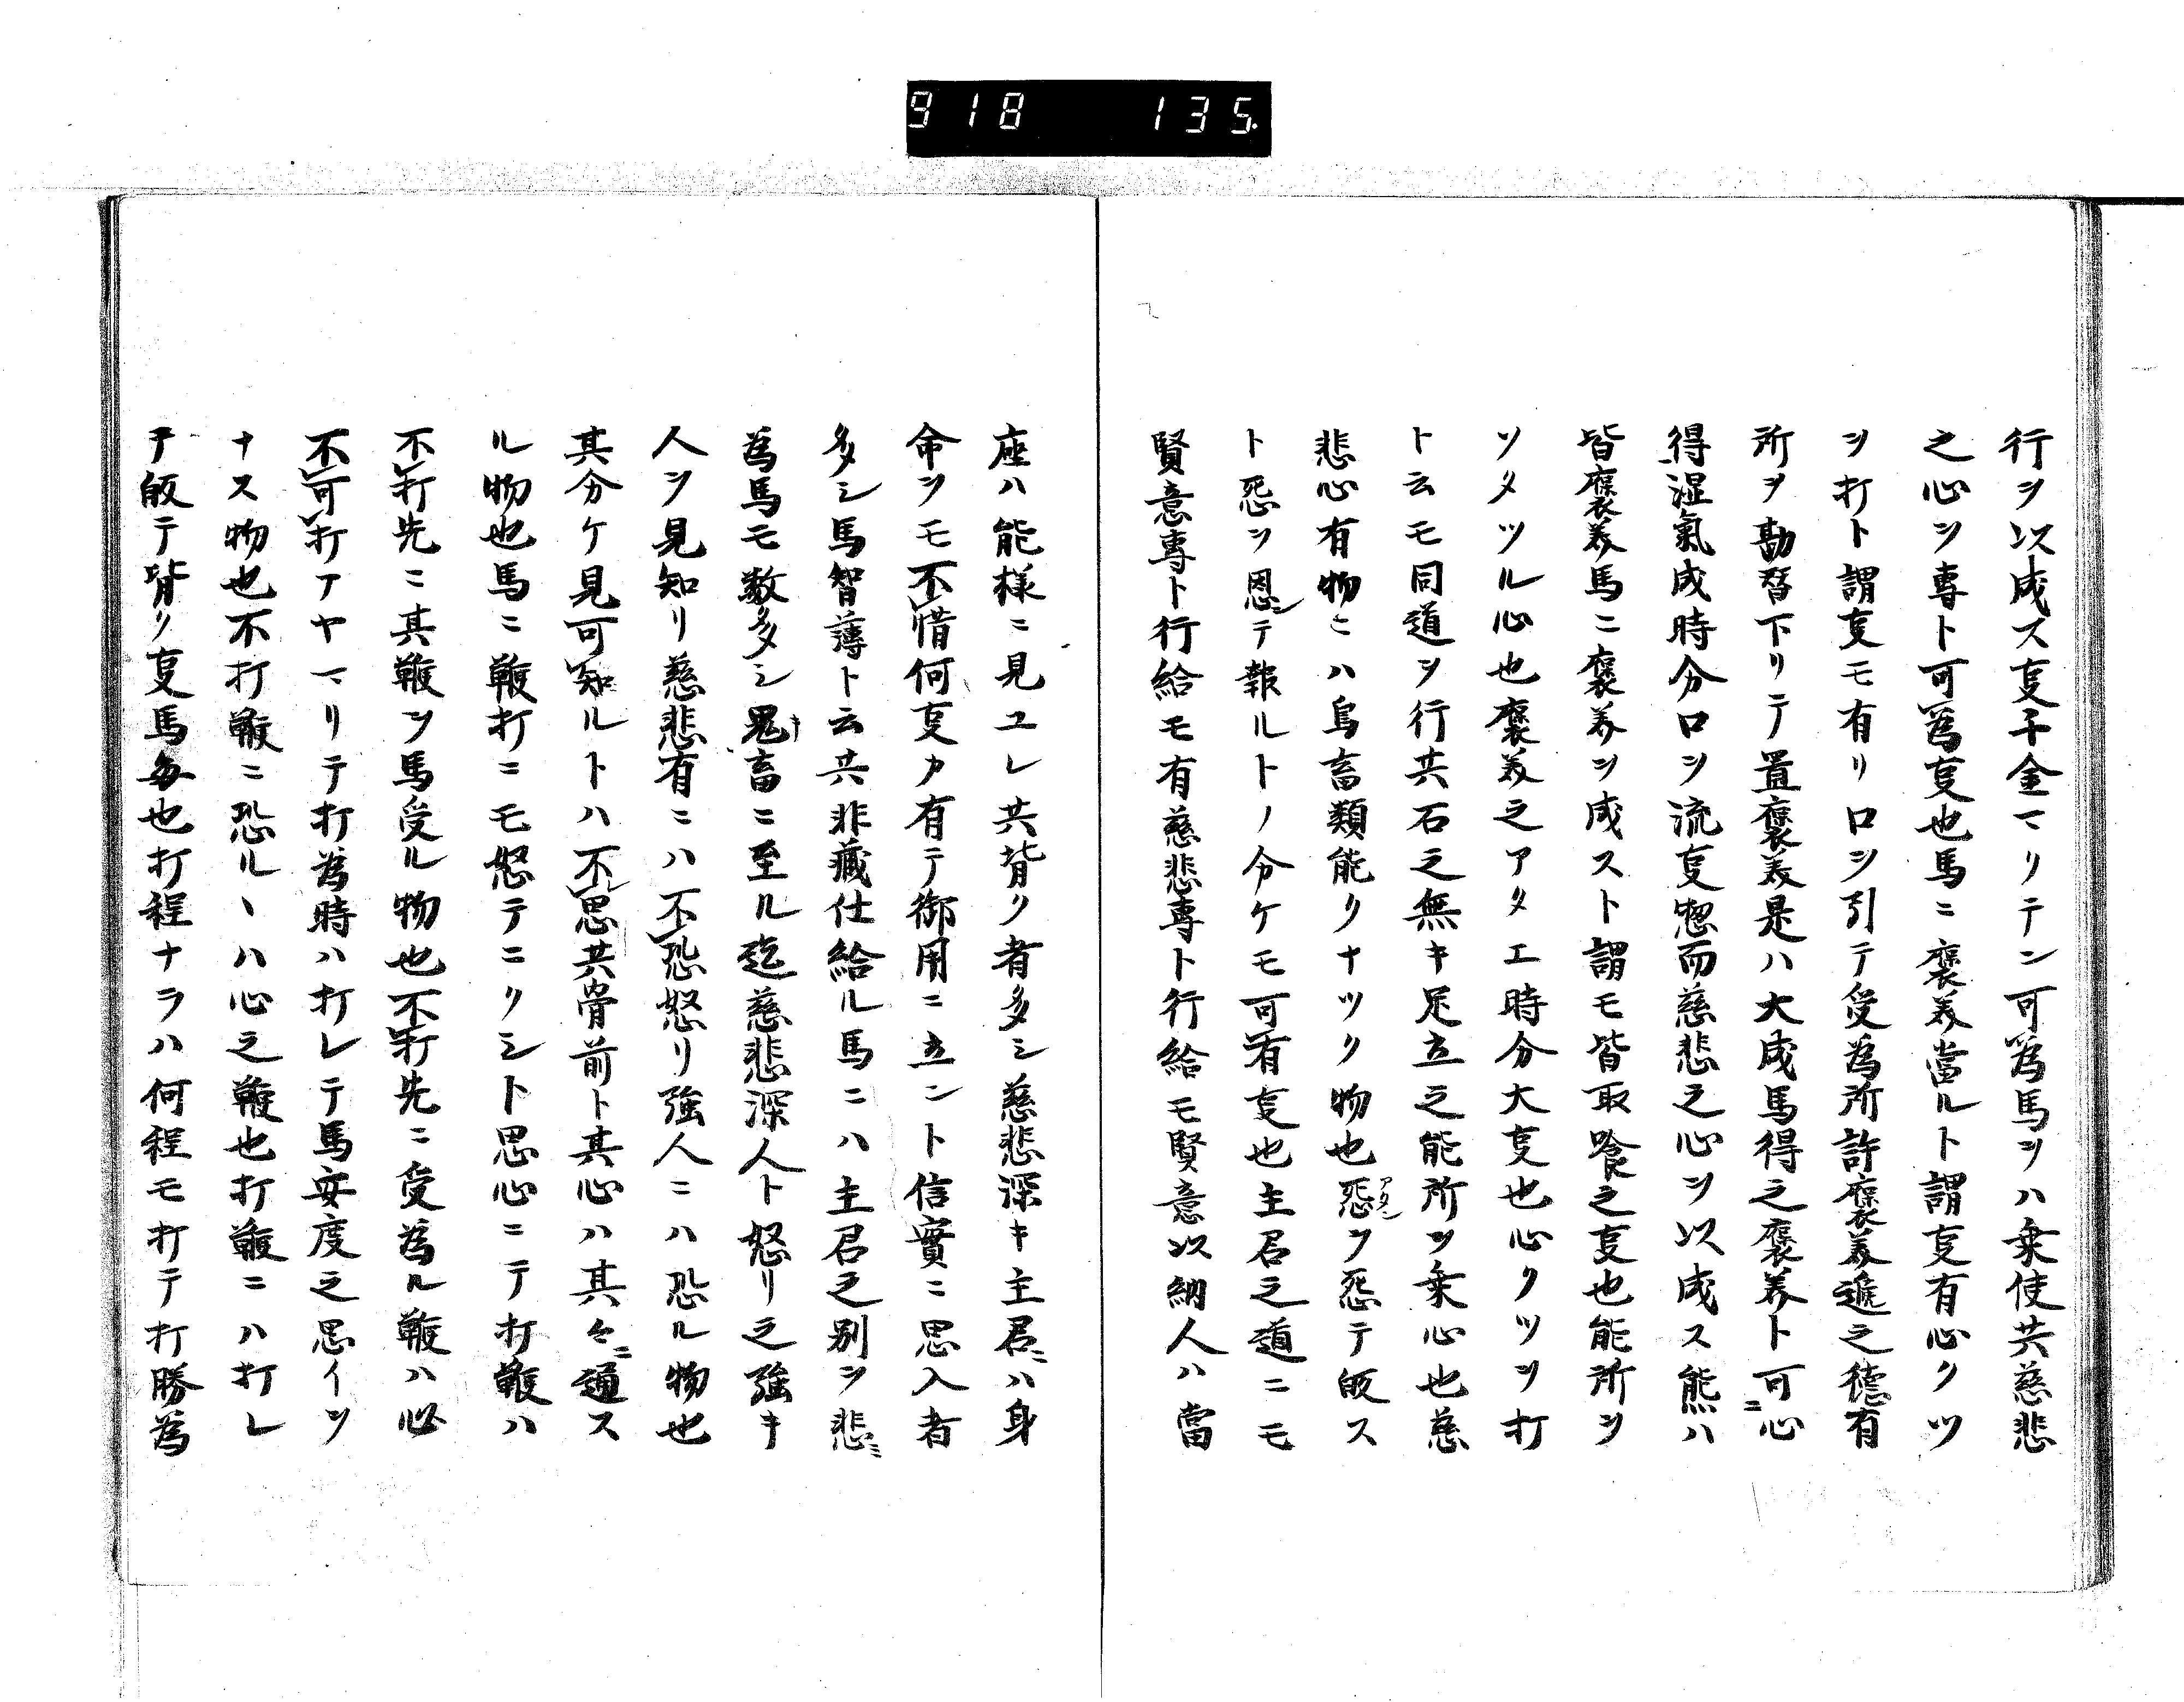 918 135.
行ヲ以成ス㕝千金マリテン可為馬ヲハ乗使共慈悲
之心ヲ専ト可為㕝也馬ニ褒美當ルト謂㕝有心クツ
ヲ打ト謂㕝モ有リ口ヲ引テ受為所許褒美遁之徳有
所ヲ勘替下リテ置褒美是ハ大成馬得之褒美ト可ニ心
得湿氣成時分口ヲ流㕝惣而慈悲之心ヲ以成ス熊ハ
皆褒美馬ニ褒美ヲ成スト謂モ皆取喰之㕝也能所ヲ
ソタツル心也褒美之アタエ時分大㕝也心クツヲ打
ト云モ同道ヲ行共石之無キ足立之能所ヲ乗心也慈
悲心有物ニハ鳥畜類能クナツク物也怨ヲ怨テ皈ス
ト怨ヲ恩ニテ報ルトノ分ケモ可有㕝也主君之道ニモ
賢意専ト行給モ有慈悲専ト行給モ賢意以納人ハ當
座ハ能様ニ見ユレ共背ク者多シ慈悲深キ主君ニハ身
命ヲモ不惜何㕝カ有テ御用ニ立ント信實ニ思入者
多シ馬智薄ト云共非蔵仕給ル馬ニハ主君之別ヲ悲ミ
為馬モ数多シ鬼畜ニ至ル迄慈悲深人ト怒リ之強キ
人ヲ見知リ慈悲有ニハ不恐怒リ強人ニハ恐ル物也
其分ケ見可知ルトハ不思共骨前ト其心ハ其々ニ通ス
ル物也馬ニ鞭打ニモ怒テニクシト思心ニテ打鞭ハ
不打先ニ其鞭ヲ馬受ル物也不打先ニ受為ル鞭ハ必
不可打アヤマリテ打為時ハ打レテ馬安度之思イヲ
ナス物也不打鞭ニ恐ルヽハ心之鞭也打鞭ニハ打レ
テ皈テ背ク㕝馬毎也打程ナラハ何程モ打テ打勝為